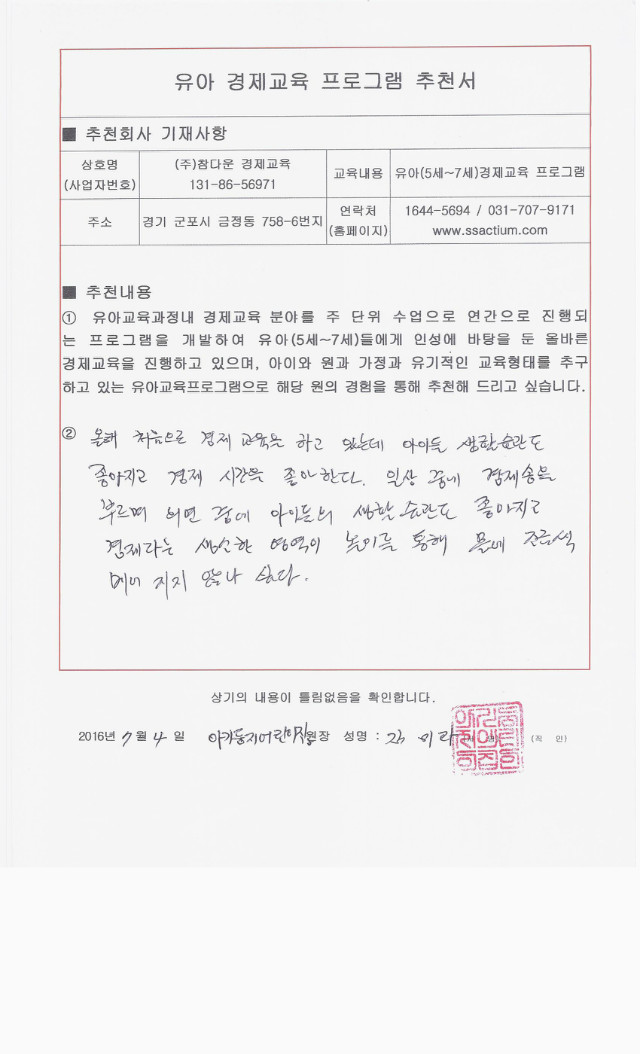 유아 경제교육 프로그램 추천서
■ 추천회사 기재사항
상호명
(사업자번호)
(주)참다운 경제교육
131-86-56971
교육내용
유아(5세~7세)경제교육 프로그램
주소
경기 군포시 금정동 758-6번지
연락처
(홈페이지)
1644-5694 / 031-707-9171
www.ssactium.com
■ 추천내용
① 유아교육과정내 경제교육 분야를 주 단위 수업으로 연간으로 진행되
는 프로그램을 개발하여 유아(5세~7세)들에게 인성에 바탕을 둔 올바른
경제교육을 진행하고 있으며, 아이와 원과 가정과 유기적인 교육형태를 추구
하고 있는 유아교육프로그램으로 해당 원의 경험을 통해 추천해 드리고 싶습니다.
② 올해 처음으로 경제 교육을 하고 있는데 아이들 생활습관도
좋아지고 경제 시간을 좋아한다. 일상 중에 경제송을
부르며 아이들의 생활 습관도 좋아지고
경제라는 생소한 영역이 놀이를 통해 몸에 조금씩
지지 않나 싶다.
상기의 내용이 틀림없음을 확인합니다.
2016년 7월 4일 아가둥지어린이집원장 성명 : 김 미라 (직 인)